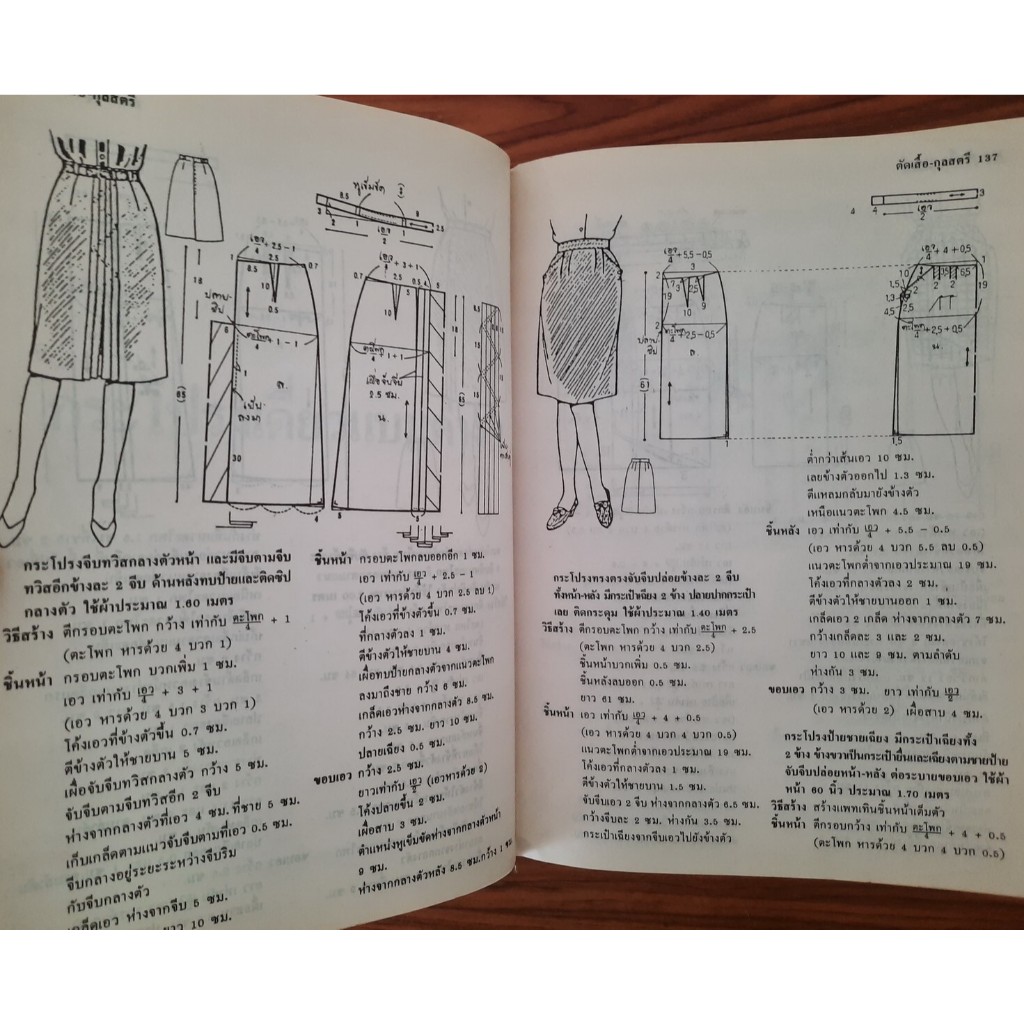 กุลสตรี
หูเข็มขัด
กระโปรงจีบทวิสกลางตัวหน้า และมีจีบตามจีบ
ทวิสอีกข้างละ 2 จีบ ด้านหลังทบป้ายและติดซิป
กลางตัว ใช้ผ้าประมาณ 1.60 เมตร
วิธีสร้าง ตีกรอบตะโพก กว้าง เท่ากับ ตะโพก/4 + 1
(ตะโพก หารด้วย 4 บวก 1)
ชิ้นหน้า กรอบตะโพก บวกเพิ่ม 1 ซม.
เอว เท่ากับ เอว/4 + 3 + 1
(เอว หารด้วย 4 บวก 3 บวก 1)
โค้งเอวที่ข้างตัวขึ้น 0.7 ซม.
ตีข้างตัวให้ชายบาน 5 ซม.
เผื่อจับจีบทวิสกลางตัว กว้าง 5 ซม.
จับจีบตามจีบทวิสอีก 2 จีบ
ห่างจากกลางตัวที่เอว 4 ซม. ที่ชาย 5 ซม.
เก็บเกล็ดตามแนวจับจีบตามที่เอว 0.5 ซม.
จีบกลางอยู่ระยะระหว่างจีบริม
กับจีบกลางตัว
เกล็ดเอว ห่างจากจีบ 5 ซม.
ยาว 10 ซม.
ชิ้นหน้า กรอบตะโพกลบออกอีก 1 ซม.
เอว เท่ากับ เอว/4 + 2.5 - 1
(เอว หารด้วย 4 บวก 2.5 ลบ 1)
โค้งเอวที่ข้างตัวขึ้น 0.7 ซม.
ที่กลางตัวลง 1 ซม.
ตีข้างตัวให้ชายบาน 4 ซม.
เผื่อทบป้ายกลางตัวจากแนวตะโพก
ลงมาถึงชาย กว้าง 6 ซม.
เกล็ดเอวห่างจากกลางตัว 8.5 ซม.
กว้าง 2.5 ซม. ยาว 10 ซม.
ปลายเฉียง 0.5 ซม.
ขอบเอว กว้าง 2.5 ซม.
ยาวเท่ากับ เอว/2 (เอวหารด้วย 2)
โค้งปลายขึ้น 2 ซม.
เผื่อสาบ 3 ซม.
ตำแหน่งหูเข็มขัดห่างจากกลางตัวหน้า
9 ซม.
ห่างจากกลางตัวหลัง 8.5 ซม. กว้าง 1 ซม.
ตัดเสื้อ-กุลสตรี 137
กระโปรงทรงตรงจับจีบปล่อยข้างละ 2 จีบ
ทั้งหน้า-หลัง มีกระเป๋าเฉียง 2 ข้าง ปลายปากกระเป๋า
เลย ติดกระดุม ใช้ผ้าประมาณ 1.40 เมตร
วิธีสร้าง ตีกรอบตะโพก กว้าง เท่ากับ ตะโพก/4 + 2.5
(ตะโพก หารด้วย 4 บวก 2.5)
ชิ้นหน้าบวกเพิ่ม 0.5 ซม.
ชิ้นหลังลบออก 0.5 ซม.
ยาว 61 ซม.
ชิ้นหน้า เอว เท่ากับ เอว/4 + 4 + 0.5
(เอว หารด้วย 4 บวก 4 บวก 0.5)
แนวตะโพกต่ำจากเอวประมาณ 19 ซม.
โค้งเอวที่กลางตัวลง 1 ซม.
ตีข้างตัวให้ชายบาน 1.5 ซม.
จับจีบเอว 2 จีบ ห่างจากกลางตัว 6.5 ซม.
กว้างจีบละ 2 ซม. ห่างกัน 3.5 ซม.
กระเป๋าเฉียงจากจีบเอวไปยังข้างตัว
ต่ำกว่าเส้นเอว 10 ซม.
เลยข้างตัวออกไป 1.3 ซม.
ตีแหลมกลับมายังข้างตัว
เหนือแนวตะโพก 4.5 ซม.
ชิ้นหลัง เอว เท่ากับ เอว/4 + 5.5 - 0.5
(เอว หารด้วย 4 บวก 5.5 ลบ 0.5)
แนวตะโพกต่ำจากเอวประมาณ 19 ซม.
โค้งเอวที่กลางตัวลง 2 ซม.
ตีข้างตัวให้ชายบานออก 1 ซม.
เกล็ดเอว 2 เกล็ด ห่างจากกลางตัว 7 ซม.
กว้างเกล็ดละ 3 และ 2 ซม.
ยาว 10 และ 9 ซม. ตามลำดับ
ห่างกัน 3 ซม.
ขอบเอว กว้าง 3 ซม. ยาว เท่ากับ เอว/2
(เอว หารด้วย 2) เผื่อสาบ 4 ซม.
กระโปรงป้ายชายเฉียง มีกระเป๋าเฉียงทั้ง
2 ข้าง ข้างขวาเป็นกระเป๋ายื่นและเฉียงตามชายป้าย
จับจีบปล่อยหน้า-หลัง ต่อระบายขอบเอว ใช้ผ้า
หน้า 60 นิ้ว ประมาณ 1.70 เมตร
วิธีสร้าง สร้างแพทเทินชิ้นหน้าเต็มตัว
ชิ้นหน้า ตีกรอบกว้าง เท่ากับ ตะโพก/4 + 4 + 0.5
(ตะโพก หารด้วย 4 บวก 4 บวก 0.5)